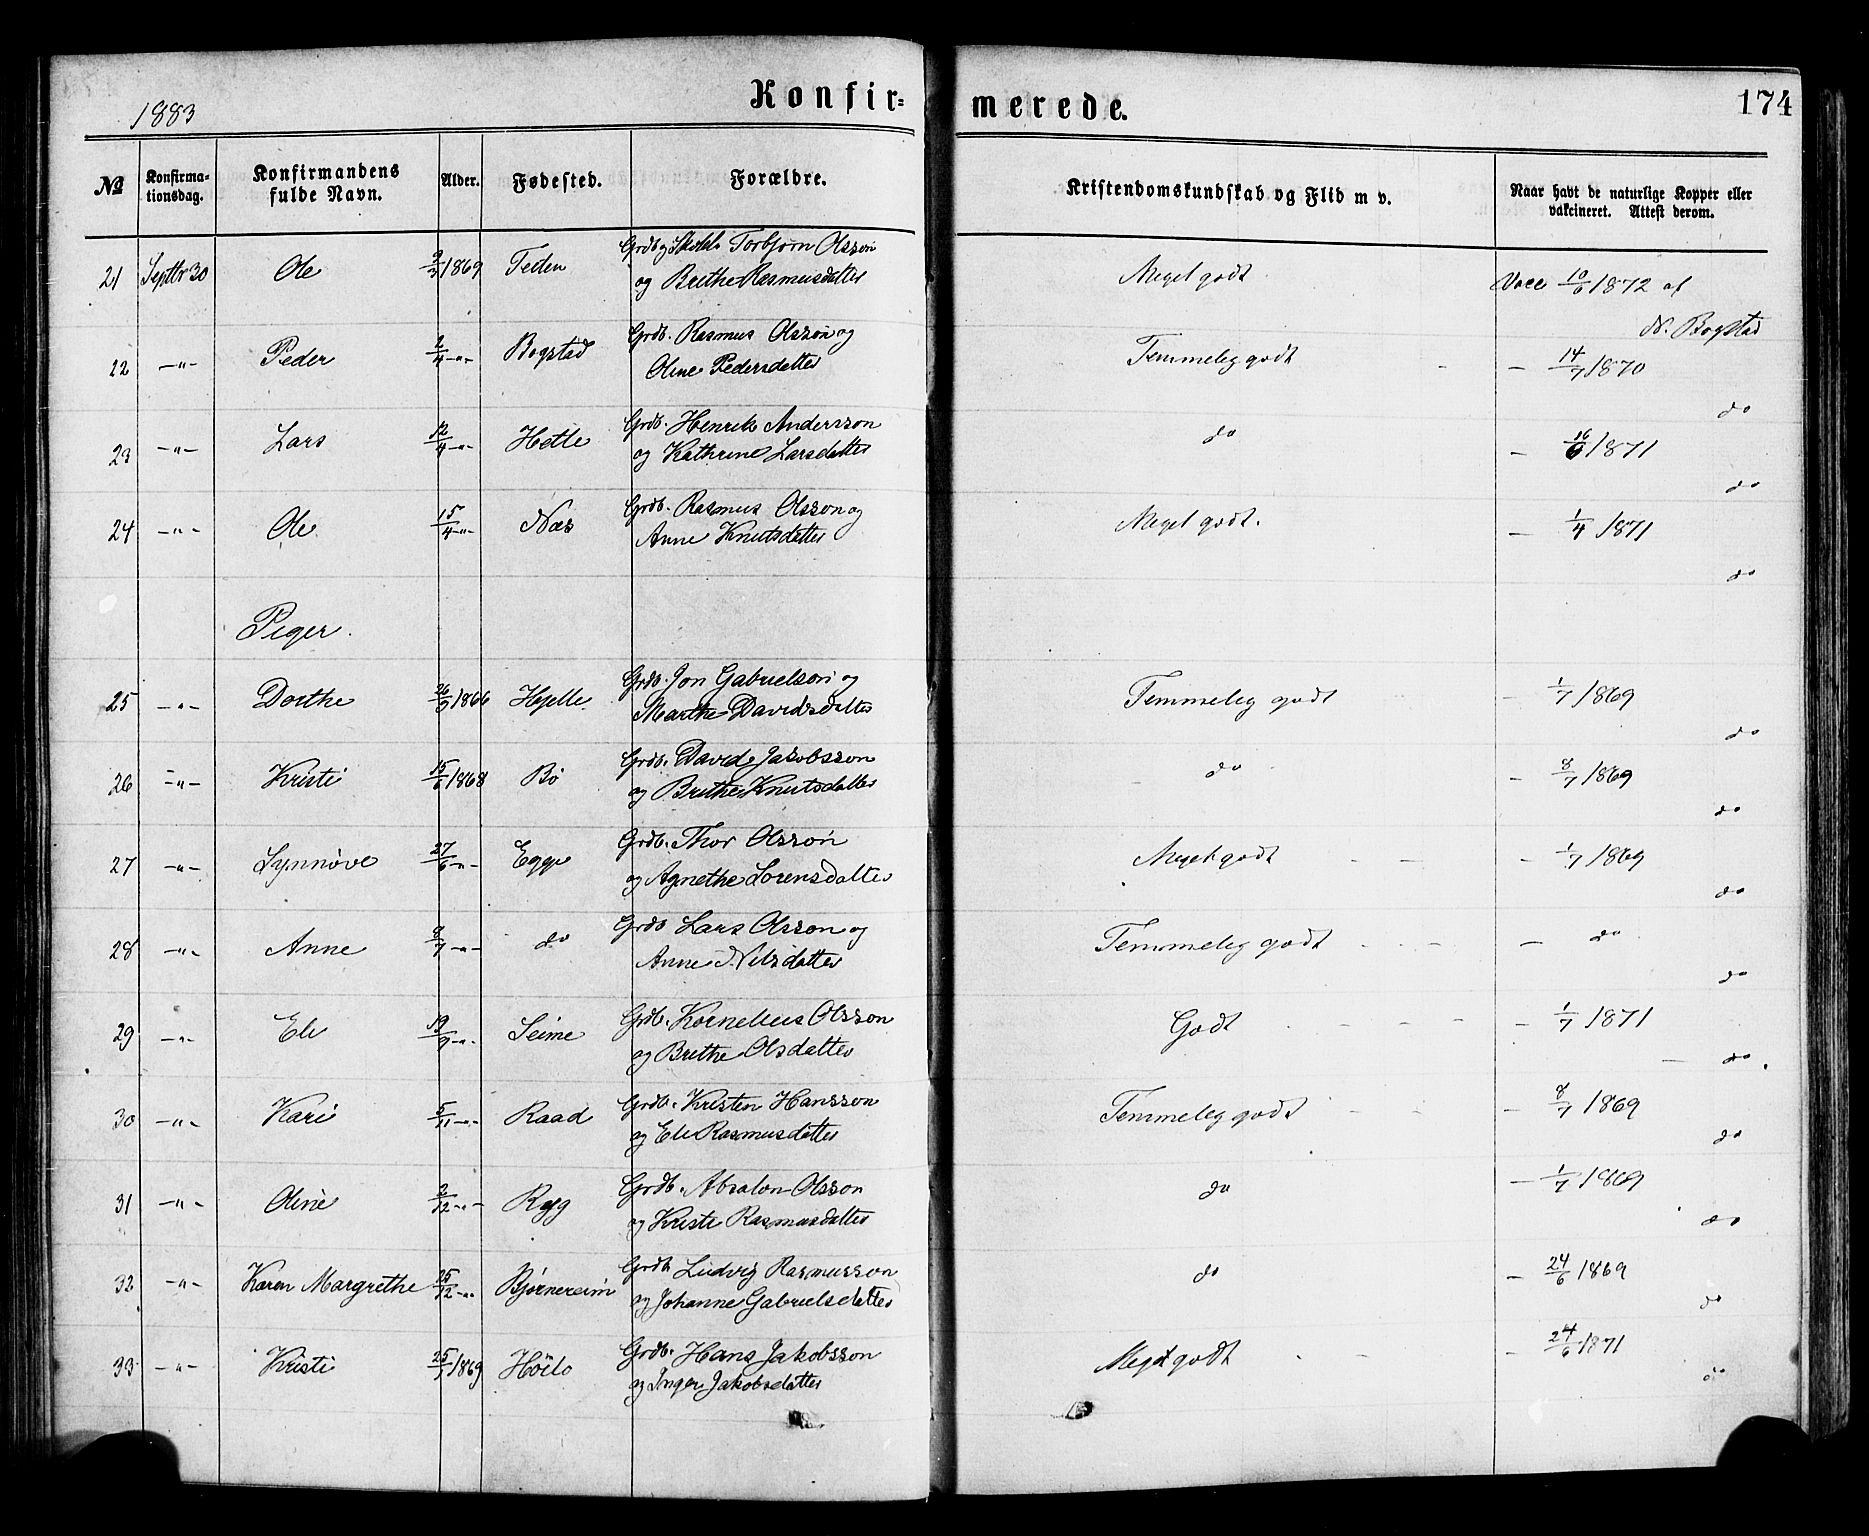 1883
Konfir=
merede.
174
№
Konfirma-
tionsdag.
Konfirmandens
fulde Navn.
Alder.
Fødested.
Forældre.
Kristendomskundskab og Flid m v.
Naar havt de naturlige Kopper eller
vakcineret. Attest derom.
21 Septbr 30 Ole 2/3 1869 Teden Grdb og Torbjørn Olsson
og Brithe Rasmusdatter Meget godt Vacc 10/6 1872 af
N. Bogstad
22 -"- Peder 2/4 -"- Bogstad Grdb. Rasmus Olsson og
Oline Pedersdatter Temmelig godt - 14/7 1870
do
23 -"- Lars 12/4 -"- Hetle Grdb. Henrik Andersson
og Kathrine Larsdatter do - 16/6 1871
do
24 -"- Ole 15/4 -"- Næs Grdb. Rasmus Olsson og
Anne Knutsdatter Meget godt. - 1/4 1871
do
Piger.
25 -"- Dorthe 26/9 1866 Hjelle Grdb. Jon Gabrielson og
Marthe Davidsdatter Temmelig godt - 1/7 1869
do
26 -"- Kristi 15/6 1868 Bø Grdb. David Jakobsson
og Brithe Knutsdatter do - 8/7 1869
do
27 -"- Synnøve 27/6 -"- Egge Grdb. Thor Olsson
og Agnethe Lorensdatter Meget godt - 1/7 1869
do
28 -"- Anne 8/7 -"- do Grdb Lars Olsson og
Anne Nilsdatter Temmelig godt - do
do
29 -"- Eli 19/9 -"- Seime Grdb. Kornelius Olsson
og Brithe Olsdatter Godt - 1/7 1871
do
30 -"- Kari 5/11 -"- Raad Grdb. Kristen Hansson
og Eli Rasmusdatter Temmelig godt - 8/7 1869
do
31 -"- Oline 2/12 -"- Ryg Grdb. Absalon Olsson
og Kristi Rasmusdatter do - 1/7 1869
do
32 -"- Karen Margrethe 25/12 -"- Bjørnereim Grdb Ludvig Rasmusson
og Johanne Gabrielsdatter do - 24/6 1869
do
33 -"- Kristi 25/7 1869 Høilo Grdb. Hans Jakobsson
og Inger Jakobsdatter Meget godt - 24/6 1871
do